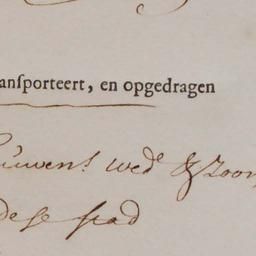 ansporteert, en opgedragen
ouwens wed. & zoon
dese stad